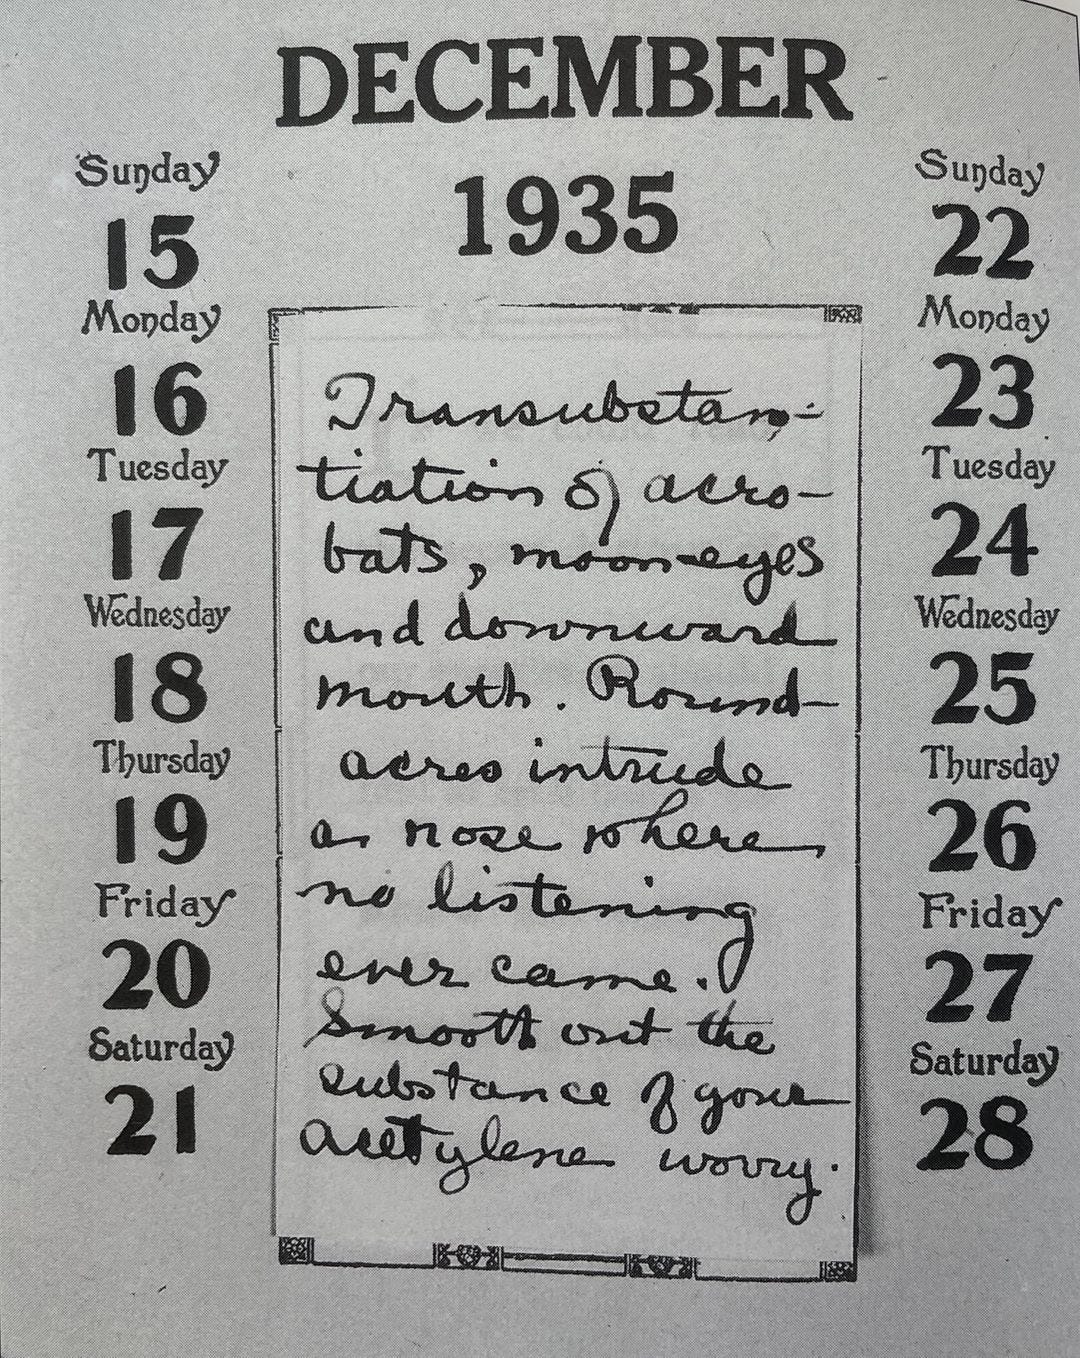 DECEMBER
1935
Sunday
15
Monday
16
Tuesday
17
Wednesday
18
Thursday
19
Friday
20
Saturday
21
Transubstan-
tiation of acro-
bats, moon-eyes
and downward
mouth. Round-
acres intrude
as nose where
no listening
ever came.
Smooth out the
substance of your
acetylene worry.
Sunday
22
Monday
23
Tuesday
24
Wednesday
25
Thursday
26
Friday
27
Saturday
28